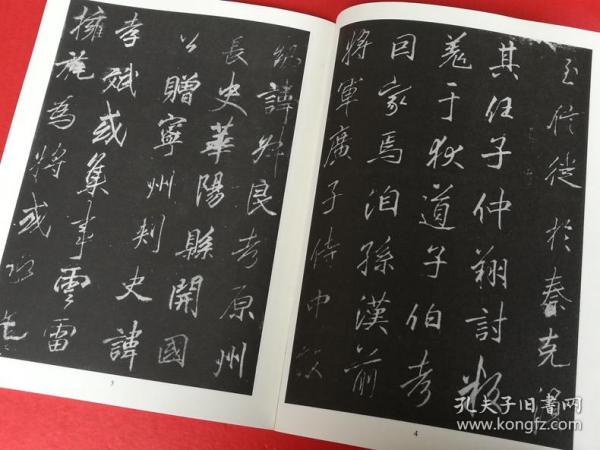 至信徙於秦克復
其任子仲翔討叛
羌于狄道子伯考
因家焉洎孫漢前
將軍廣子侍中敢
4
諱艮考原州
長史華陽縣開國
公贈寧州刺史諱
孝斌或集事雲雷
擁旄為將或
5
孔夫子旧书网
www.kongfz.com